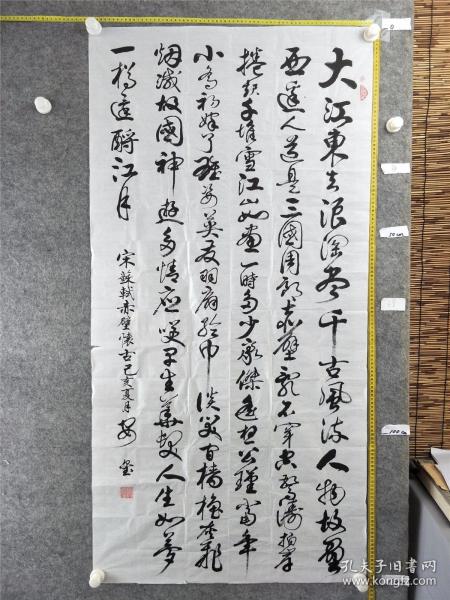 大江東去浪淘盡千古風流人物故壘
西邊人道是三國周郎赤壁亂石穿空驚濤拍岸
捲起千堆雪江山如畫一時多少豪傑遙想公瑾當年
小喬初嫁了雄姿英發羽扇綸巾談笑間檣櫓灰飛
烟滅故國神遊多情應笑早生華髮人生如夢
一樽還酹江月
宋蘇軾赤壁懷古己亥夏月
0
50cm
100cm
孔夫子旧书网
kongfz.com